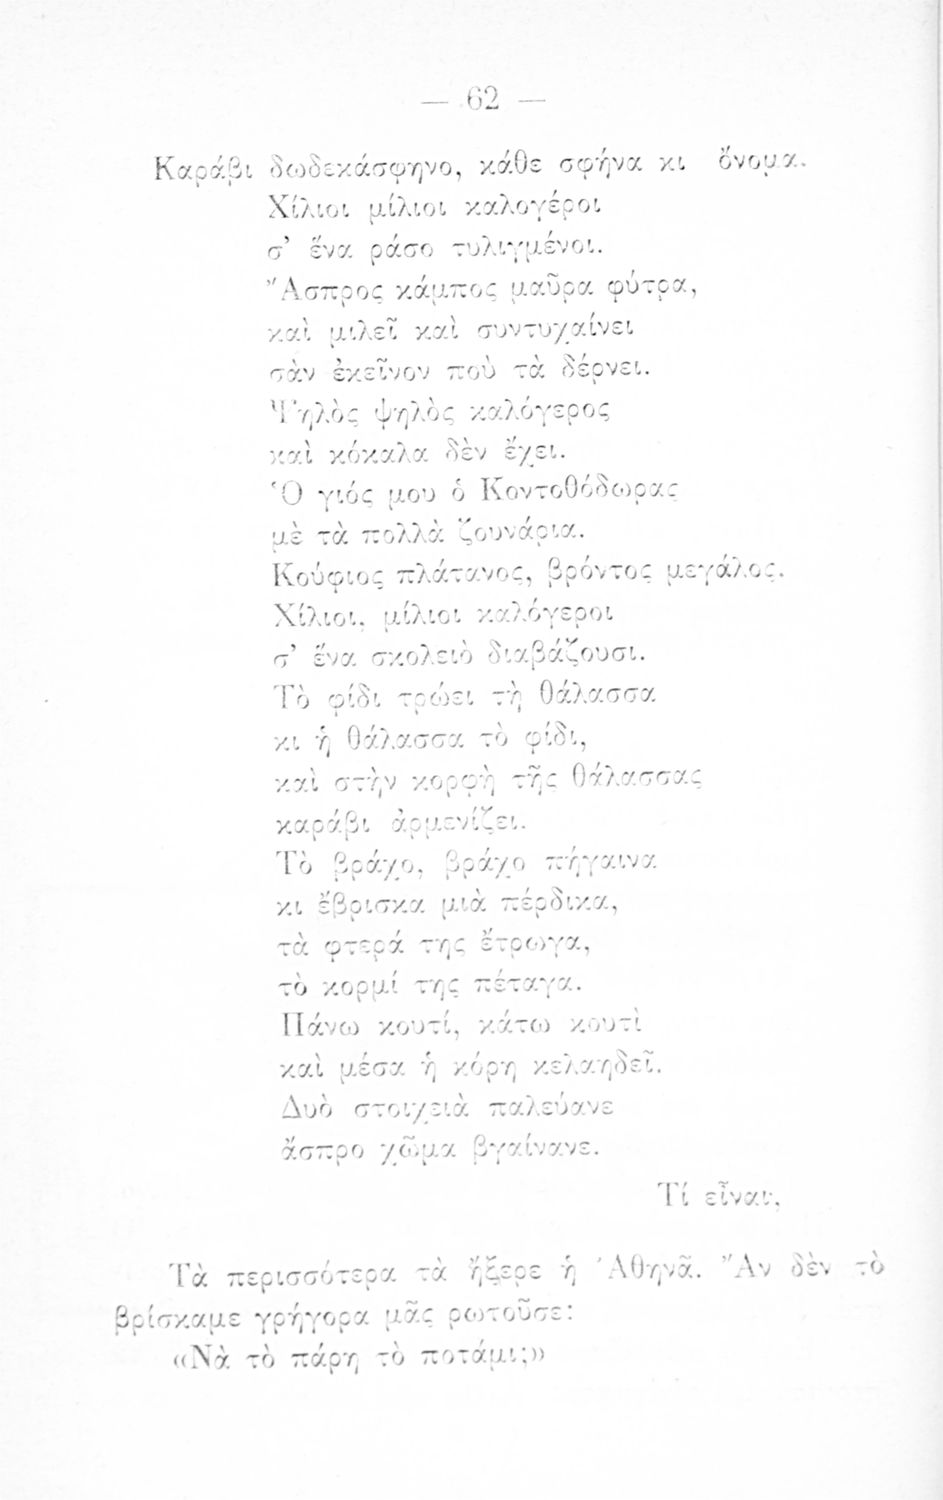 — 62 —
Καράβι δωδεκάσφηνο, κάθε σφήνα κι ὄνομα.
Χίλιοι μίλιοι καλογέροι
σ’ ἕνα ράσο τυλιγμένοι.
Ἄσπρος κάμπος μαῦρα φύτρα,
καὶ μιλεῖ καὶ συντυχαίνει
σὰν ἐκεῖνον ποὺ τὰ δέρνει.
Ψηλὸς ψηλὸς καλόγερος
καὶ κόκαλα δὲν ἔχει.
Ὁ γιός μου ὁ Κοντοθόδωρας
μὲ τὰ πολλὰ ζουνάρια.
Κούφιος πλάτανος, βρόντος μεγάλος.
Χίλιοι, μίλιοι καλόγεροι
σ’ ἕνα σκολειὸ διαβάζουσι.
Τὸ φίδι τρώει τὴ θάλασσα
κι ἡ θάλασσα τὸ φίδι,
καὶ στὴν κορφὴ τῆς θάλασσας
καράβι ἀρμενίζει.
Τὸ βράχο, βράχο πήγαινα
κι ἔβρισκα μιὰ πέρδικα,
τὰ φτερά της ἔτρωγα,
τὸ κορμί της πέταγα.
Πάνω κουτί, κάτω κουτὶ
καὶ μέσα ἡ κόρη κελαηδεῖ.
Δυὸ στοιχειὰ παλεύανε
ἄσπρο χῶμα βγαίνανε.
Τί εἶναι;
Τὰ περισσότερα τὰ ἤξερε ἡ Ἀθηνᾶ. Ἂν δὲν τὸ
βρίσκαμε γρήγορα μᾶς ρωτοῦσε:
«Νὰ τὸ πάρη τὸ ποτάμι;»